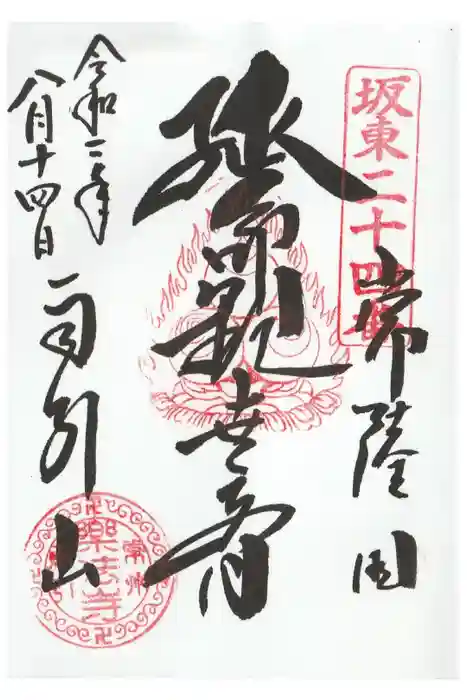 坂東二十四番
常陸国
延命観世音
雨引山
令和二年
八月十四日
常州
樂法寺